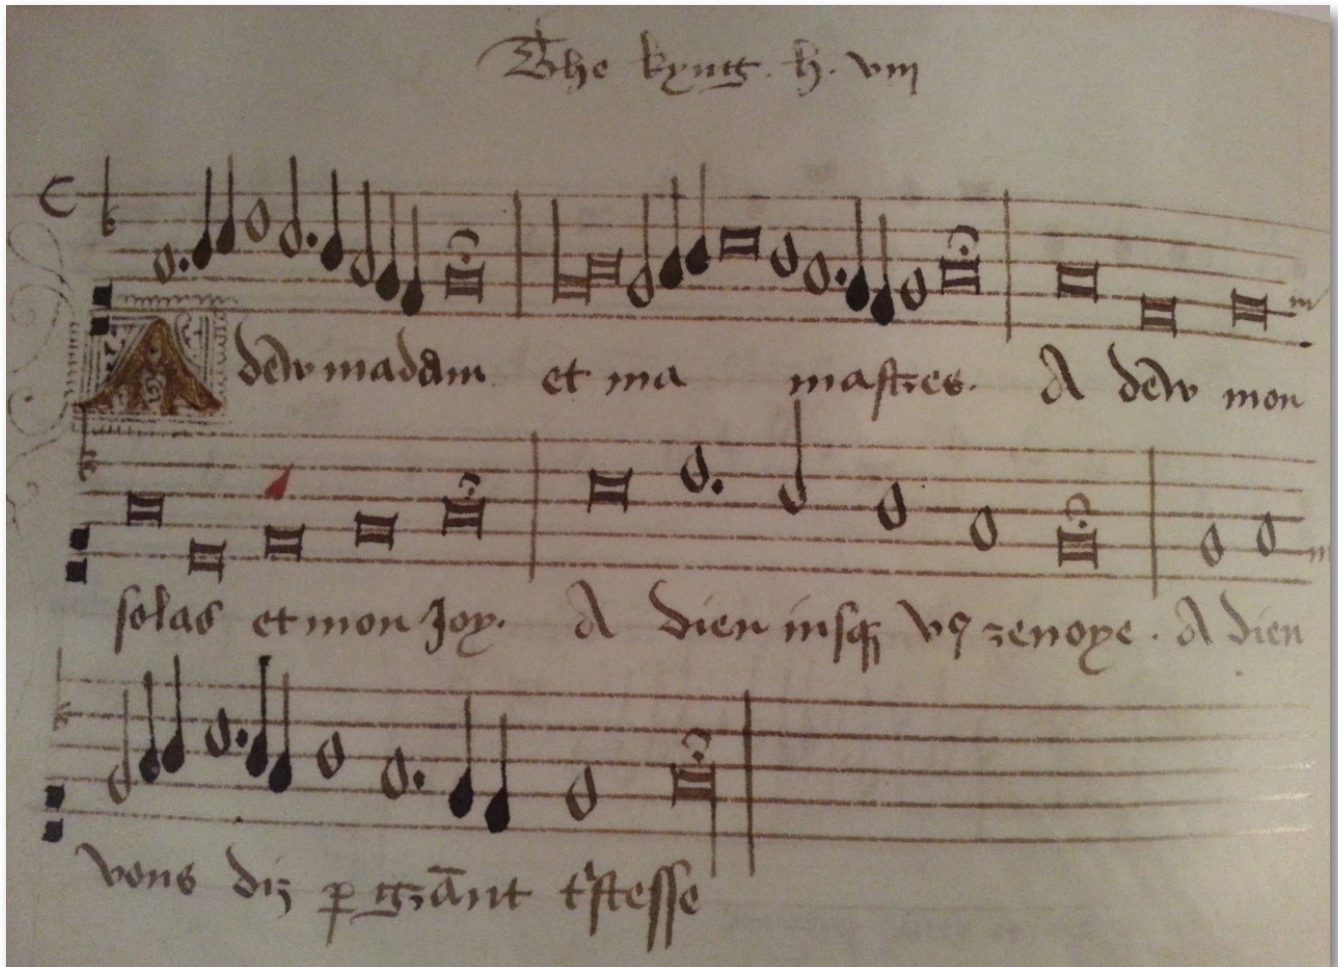 The kyng. h. viij
A dew madam et ma mastres. A dew mon
solas et mon Joy. A dieu iusq vo9 reuoye. A dieu
vous diz p grānt tstesse